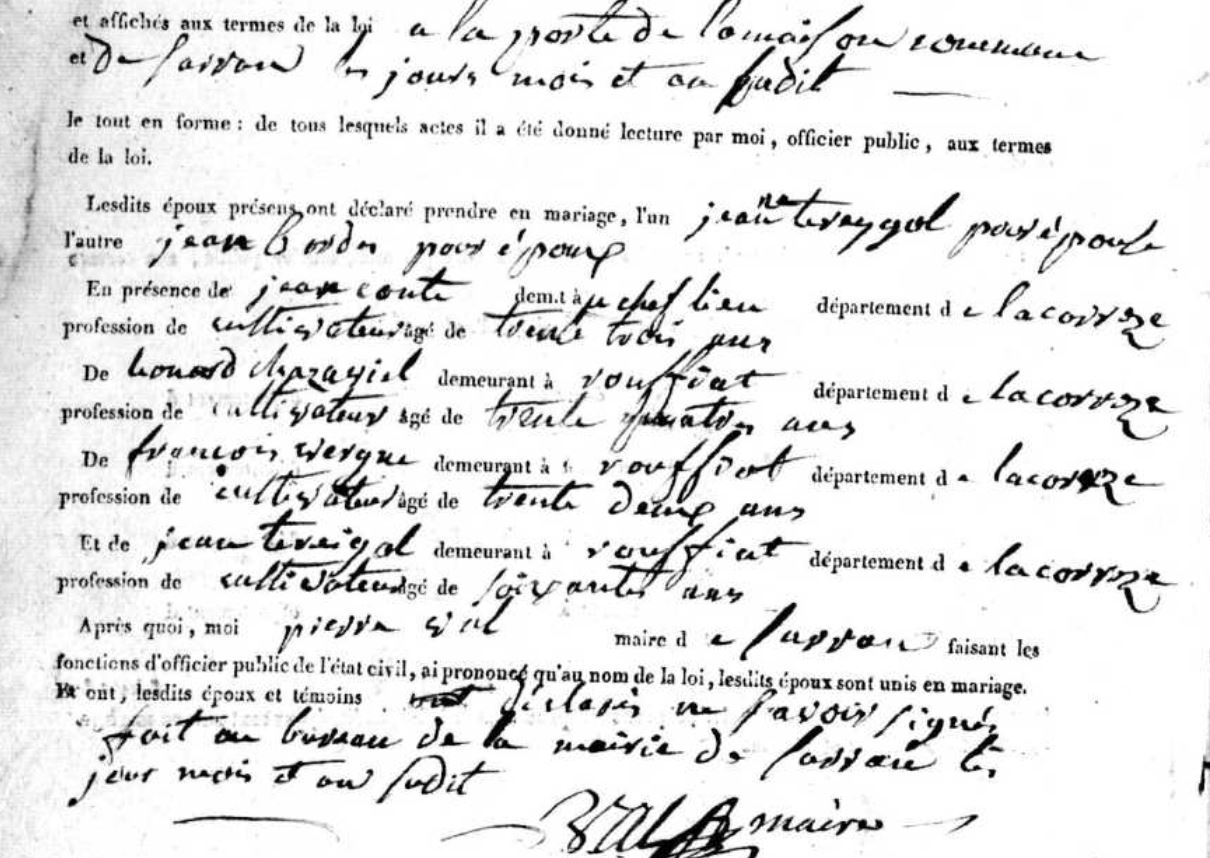 et affichés aux termes de la loi a la porte de lamaison commune
et De sarran les jours mois et an sudit
le tout en forme : de tous lesquels actes il a été donné lecture par moi, officier public, aux termes
de la loi.
Lesdits époux présens ont déclaré prendre en mariage, l'un jeanne treygol pour épouse
l'autre jean bordes pour époux
En présence de jean conte dem.t à u chef lieu département d e lacorreze
profession de cultivateur âgé de trente trois ans
De leonard demeurant à rouffiat département d e lacorreze
profession de cultivateur âgé de trente quatre ans
De francois vergne demeurant à rouffiat département d e lacorreze
profession de cultivateur âgé de trente deux ans
Et de jean treigol demeurant à rouffiat département d e lacorreze
profession de cultivateur âgé de soixante ans
Après quoi, moi pierre val maire d e sarran faisant les
fonctions d'officier public de l'état civil, ai prononcé qu'au nom de la loi, lesdits époux sont unis en mariage.
Et ont, lesdits époux et témoins déclarés ne savoir signés
fait au bureau de la mairie de sarran les
jour mois et an sudit
Val maire